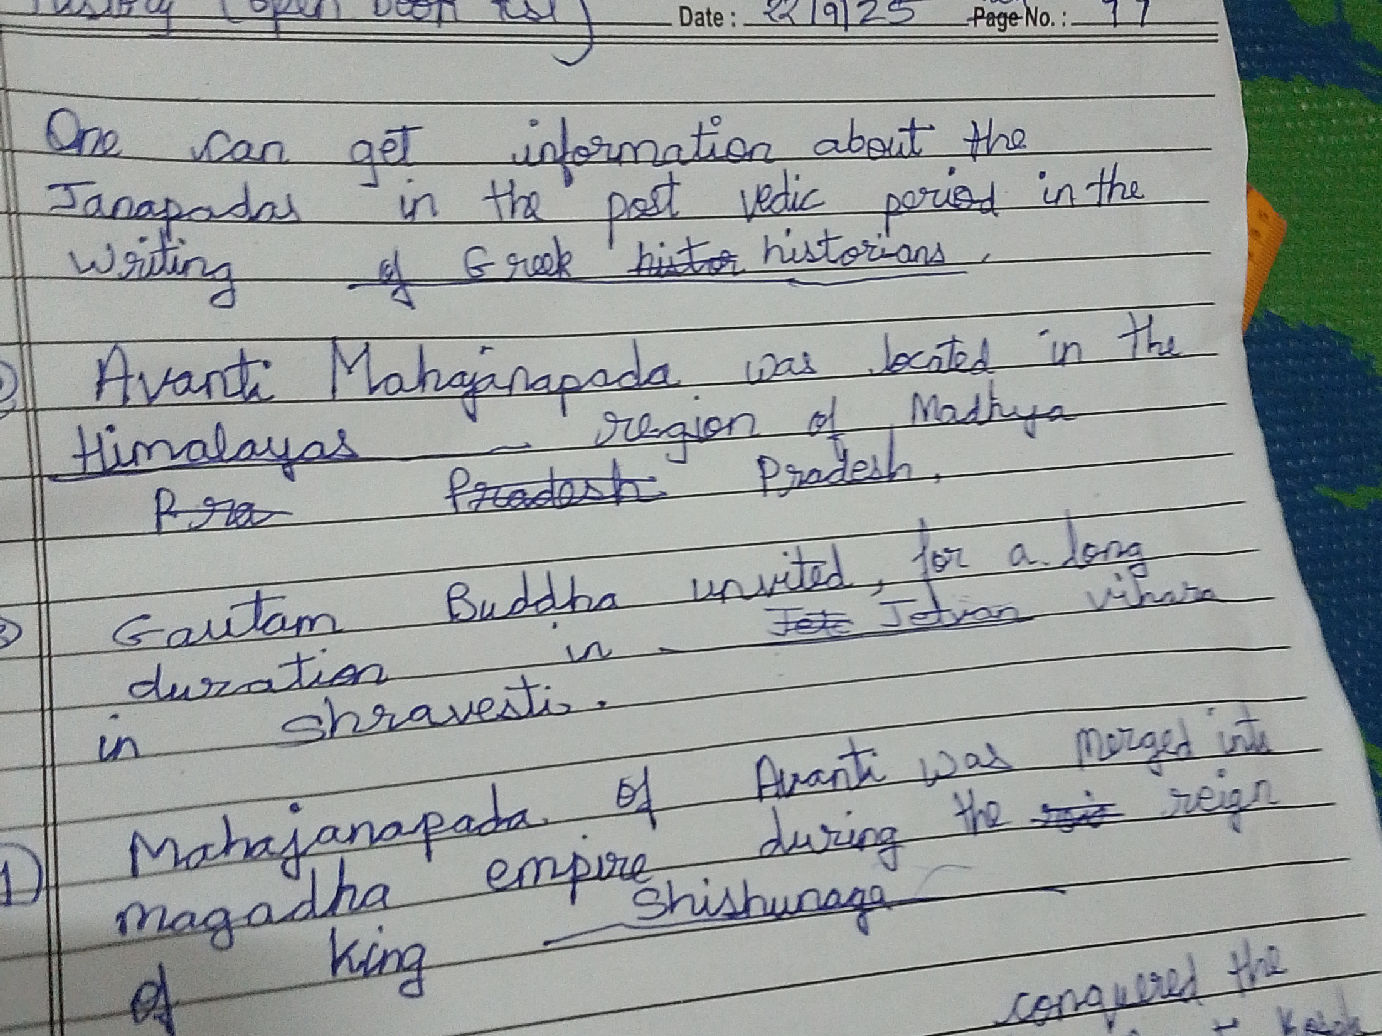 History (open book test)
Date : 22/9/25 Page No. : 97
One can get information about the
Janapadas in the post vedic period in the
writing of Greek histor historians.
Avanti Mahajanapada was located in the
Himalayas region of Madhya
Pra Pradesh Pradesh.
3 Gautam Buddha unvited, for a long
duration in Jete Jetvan vihara
in Shravesti.
Mahajanapada of Avanti was merged into
magadha empire during the reign
of king Shishunaga
conquered the